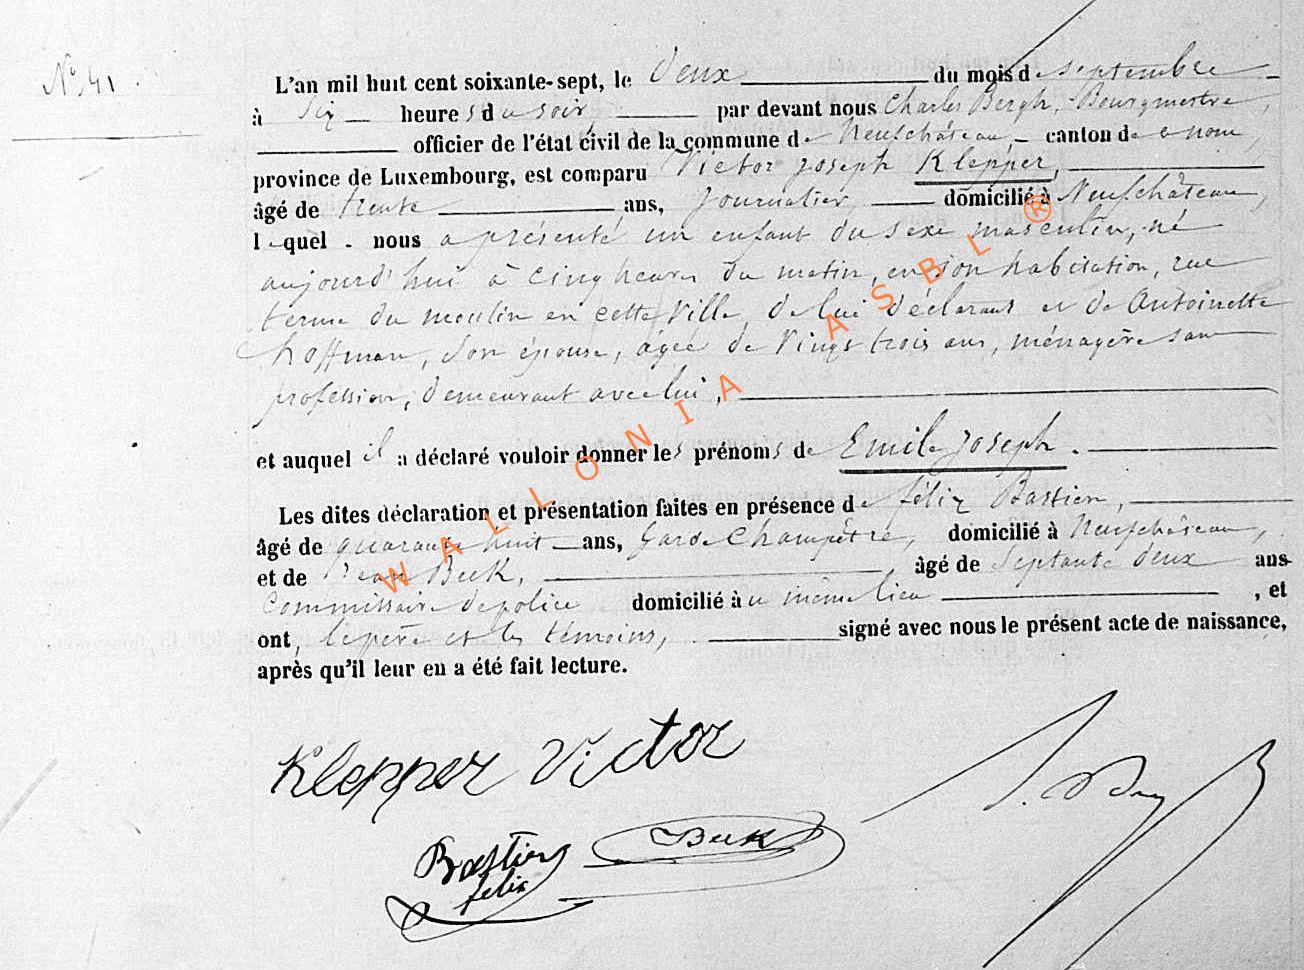 N° 41.
L'an mil huit cent soixante-sept, le deux du mois de septembre
à six heures du soir, par devant nous Charles Bergh, Bourgmestre,
officier de l'état civil de la commune de Neufchâteau, canton de ce nom,
province de Luxembourg, est comparu Victor Joseph Klepper,
âgé de trente ans, journalier domicilié à Neufchâteau,
lequel nous a présenté un enfant du sexe masculin, né
aujourd'hui à cinq heures du matin, en son habitation, rue
terme du moulin en cette Ville, de lui déclarant et de Antoinette
Hoffman, son épouse, agée de Vingt trois ans, ménagère sans
profession, demeurant avec lui,
et auquel il a déclaré vouloir donner les prénoms de Emile Joseph.
Les dites déclaration et présentation faites en présence de félix Bastien,
âgé de quarante huit ans, Garde Champêtre, domicilié à Neufchâteau,
et de Jean Beck, âgé de Septante deux ans
Commissaire de police domicilié au même lieu, et
ont, le père et les témoins, signé avec nous le présent acte de naissance,
après qu'il leur en a été fait lecture.
Klepper Victor
Bastien Beck
felix
WALLONIA ASBL ®